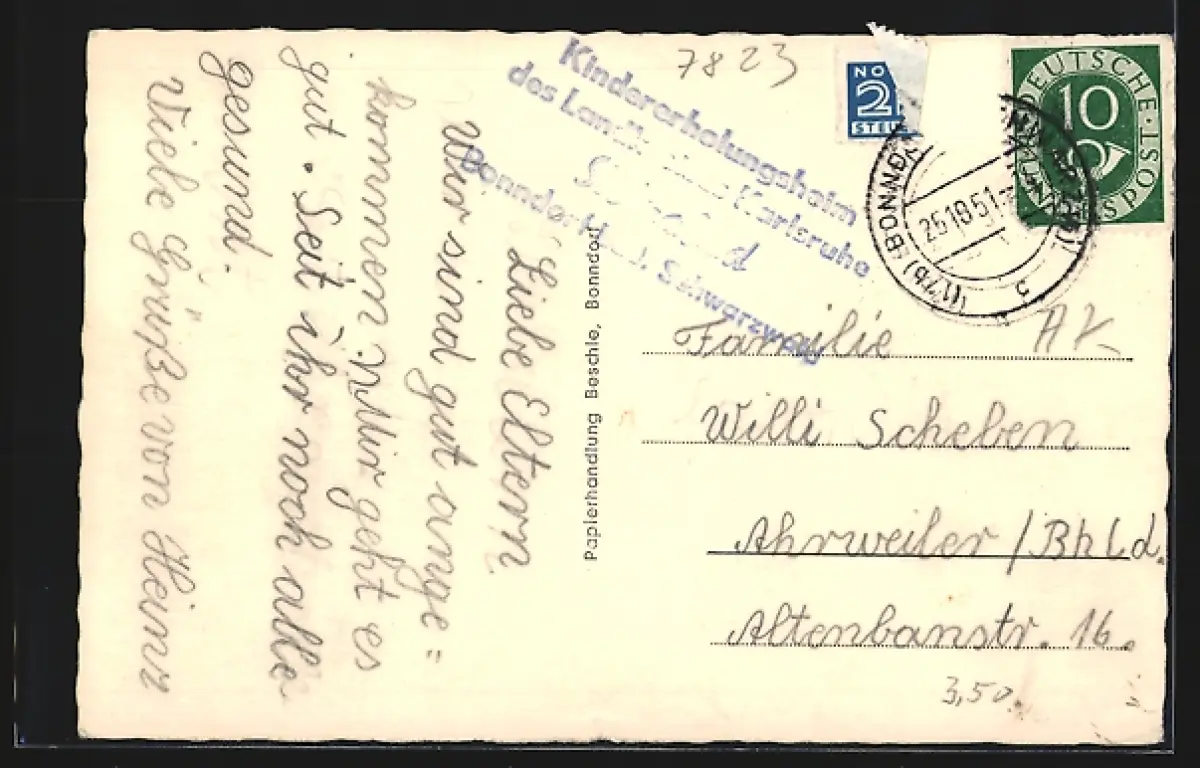 Liebe Eltern
Wir sind gut ange=
kommen. Mir geht es
gut. Seit ihr noch alle
gesund.
Viele Grüße von Heinz
Papierhandlung Beschle, Bonndorf
Kindererholungsheim
des Karlsruhe
Bonndorf Schwarzwald
7823
NO
2
STEU
DEUTSCHE POST
10
(17b) BONNDORF
25.10.51
Familie
Willi Scheben
Ahrweiler / Rhld.
Altenbaustr. 16.
3,50